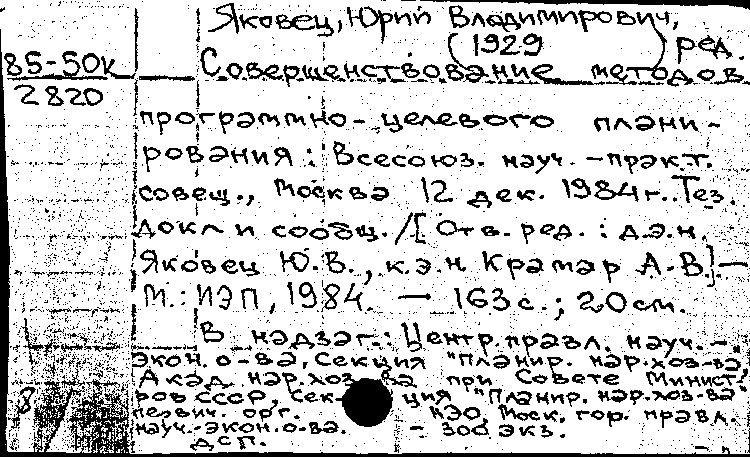 Яковец, Юрий Владимирович,
(1929 ) ред.
85-50к Совершенствование методов
2820
программно-целевого плани-
рования: Всесоюз. науч.-практ.
совещ., Москва 12 дек. 1984 г.. Тез.
докл и сообщ. /[Отв. ред.: д.э.н.
Яковец Ю.В., к.э.н Крамар А.В.].—
М.: ИЭП, 1984. — 163 с.; 20 см.
В надзаг.: Центр. правл. науч.-
экон. о-ва, Секция "Планир. нар. хоз-ва",
Акад. нар. хоз ва при Совете Минист-
ров СССР, Сек- ция "Планир. нар. хоз-ва"
первич. орг. НЭО, Моск. гор. правл.
науч.-экон. о-ва. - 300 экз.
ДСП.
8